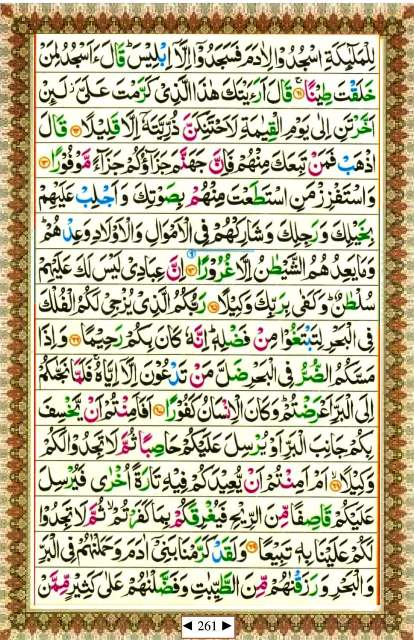 لِلْمَلٰٓئِكَةِ اسْجُدُوْا لِاٰدَمَ فَسَجَدُوْٓا اِلَّآ اِبْلِيْسَ ؕ قَالَ ءَاَسْجُدُ لِمَنْ
خَلَقْتَ طِيْنًا ۚ﴿۶۱﴾ قَالَ اَرَءَيْتَكَ هٰذَا الَّذِيْ كَرَّمْتَ عَلَيَّ ؗ لَىِٕنْ
اَخَّرْتَنِ اِلٰى يَوْمِ الْقِيٰمَةِ لَاَحْتَنِكَنَّ ذُرِّيَّتَهٗٓ اِلَّا قَلِيْلًا ﴿۶۲﴾ قَالَ
اذْهَبْ فَمَنْ تَبِعَكَ مِنْهُمْ فَاِنَّ جَهَنَّمَ جَزَآؤُكُمْ جَزَآءً مَّوْفُوْرًا ﴿۶۳﴾
وَاسْتَفْزِزْ مَنِ اسْتَطَعْتَ مِنْهُمْ بِصَوْتِكَ وَاَجْلِبْ عَلَيْهِمْ
بِخَيْلِكَ وَرَجِلِكَ وَشَارِكْهُمْ فِي الْاَمْوَالِ وَالْاَوْلَادِ وَعِدْهُمْ ؕ
وَمَا يَعِدُهُمُ الشَّيْطٰنُ اِلَّا غُرُوْرًا ﴿۶۴﴾ اِنَّ عِبَادِيْ لَيْسَ لَكَ عَلَيْهِمْ
سُلْطٰنٌ ؕ وَكَفٰى بِرَبِّكَ وَكِيْلًا ﴿۶۵﴾ رَبُّكُمُ الَّذِيْ يُزْجِيْ لَكُمُ الْفُلْكَ
فِي الْبَحْرِ لِتَبْتَغُوْا مِنْ فَضْلِهٖ ؕ اِنَّهٗ كَانَ بِكُمْ رَحِيْمًا ﴿۶۶﴾ وَاِذَا
مَسَّكُمُ الضُّرُّ فِي الْبَحْرِ ضَلَّ مَنْ تَدْعُوْنَ اِلَّآ اِيَّاهُ ۚ فَلَمَّا نَجّٰىكُمْ
اِلَى الْبَرِّ اَعْرَضْتُمْ ؕ وَكَانَ الْاِنْسَانُ كَفُوْرًا ﴿۶۷﴾ اَفَاَمِنْتُمْ اَنْ يَّخْسِفَ
بِكُمْ جَانِبَ الْبَرِّ اَوْ يُرْسِلَ عَلَيْكُمْ حَاصِبًا ثُمَّ لَا تَجِدُوْا لَكُمْ
وَكِيْلًا ﴿۶۸﴾ اَمْ اَمِنْتُمْ اَنْ يُّعِيْدَكُمْ فِيْهِ تَارَةً اُخْرٰى فَيُرْسِلَ
عَلَيْكُمْ قَاصِفًا مِّنَ الرِّيْحِ فَيُغْرِقَكُمْ بِمَا كَفَرْتُمْ ۙ ثُمَّ لَا تَجِدُوْا
لَكُمْ عَلَيْنَا بِهٖ تَبِيْعًا ﴿۶۹﴾ وَلَقَدْ كَرَّمْنَا بَنِيْٓ اٰدَمَ وَحَمَلْنٰهُمْ فِي الْبَرِّ
وَالْبَحْرِ وَرَزَقْنٰهُمْ مِّنَ الطَّيِّبٰتِ وَفَضَّلْنٰهُمْ عَلٰى كَثِيْرٍ مِّمَّنْ
◄ 261 ►